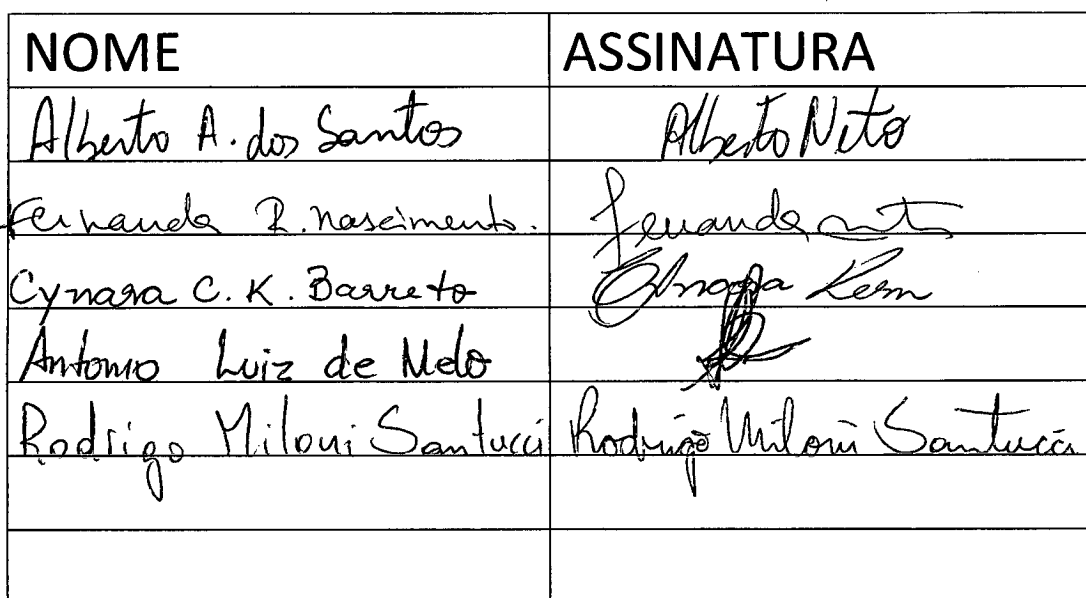 NOME ASSINATURA
Alberto A. dos Santos Alberto Neto
Fernanda R. nascimento. Fernanda
Cynara C. K. Barreto Cynara Kern
Antonio Luiz de Melo
Rodrigo Miloni Santucci Rodrigo Miloni Santucci